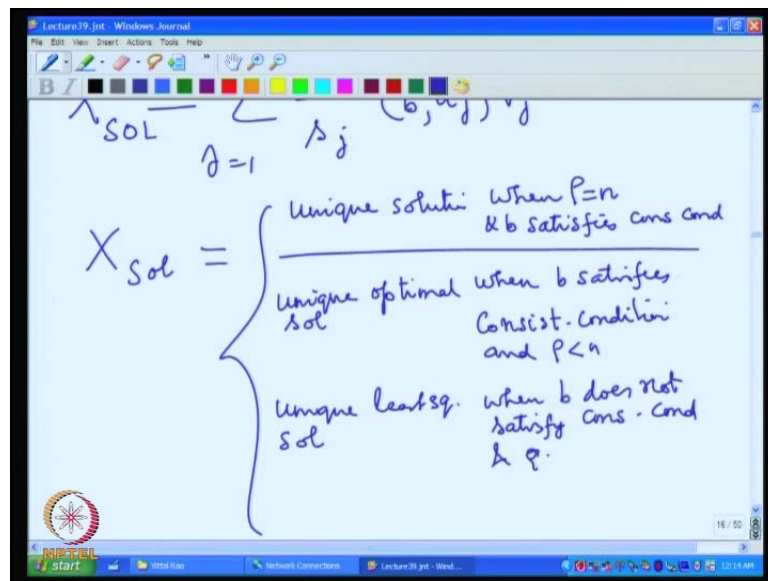 Lecture39.jnt - Windows Journal
File Edit View Insert Actions Tools Help
B I
SOL = Σ (b, uj) vj
j=1 sj
X Sol =
unique soluti when ρ=n
& b satisfies cons cond
unique optimal when b satisfies
sol consist. condition
and ρ<n
unique least sq. when b does not
sol satisfy cons. cond
& ρ.
16 / 50
NPTEL
start Vittal Rao Network Connections Lecture39.jnt - Wind... 12:14 AM